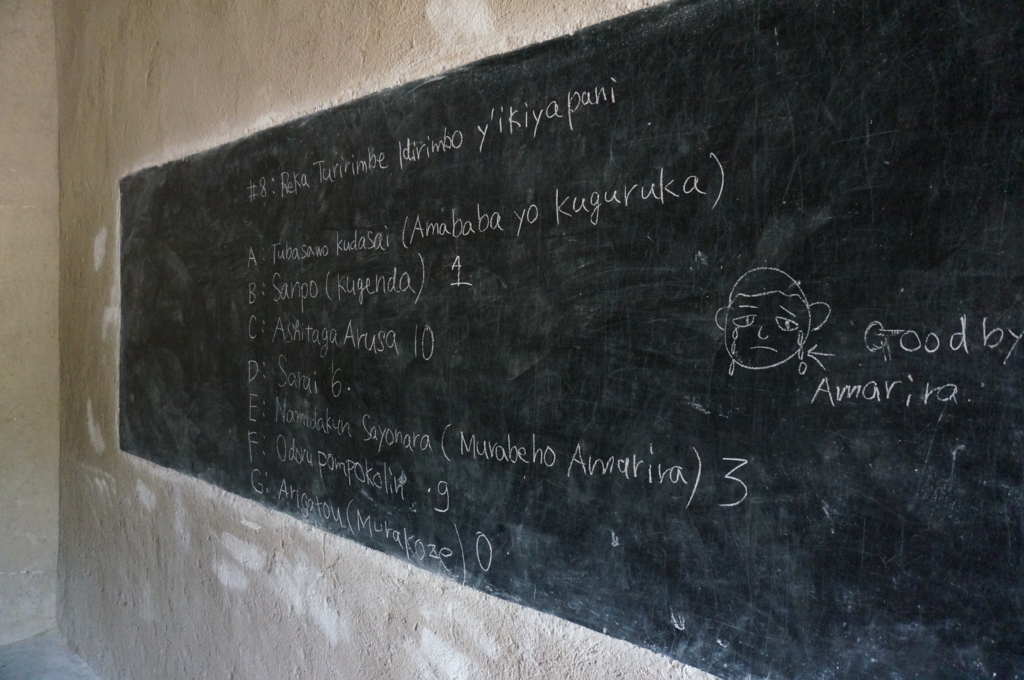 #8: Reka Turirimbe Idirimbo y'ikiyapani
A: Tubasawo kudasai (Amababa yo kuguruka)
B: Sanpo (kugenda) 1
C: AshitagaArusa 10
D: Sarai 6.
E: Namidakun Sayonara (Murabeho Amarira) 3
F: Odoru pompokolin .9
G: Arigatou (Murakoze) 0
Goodby
Amarira.